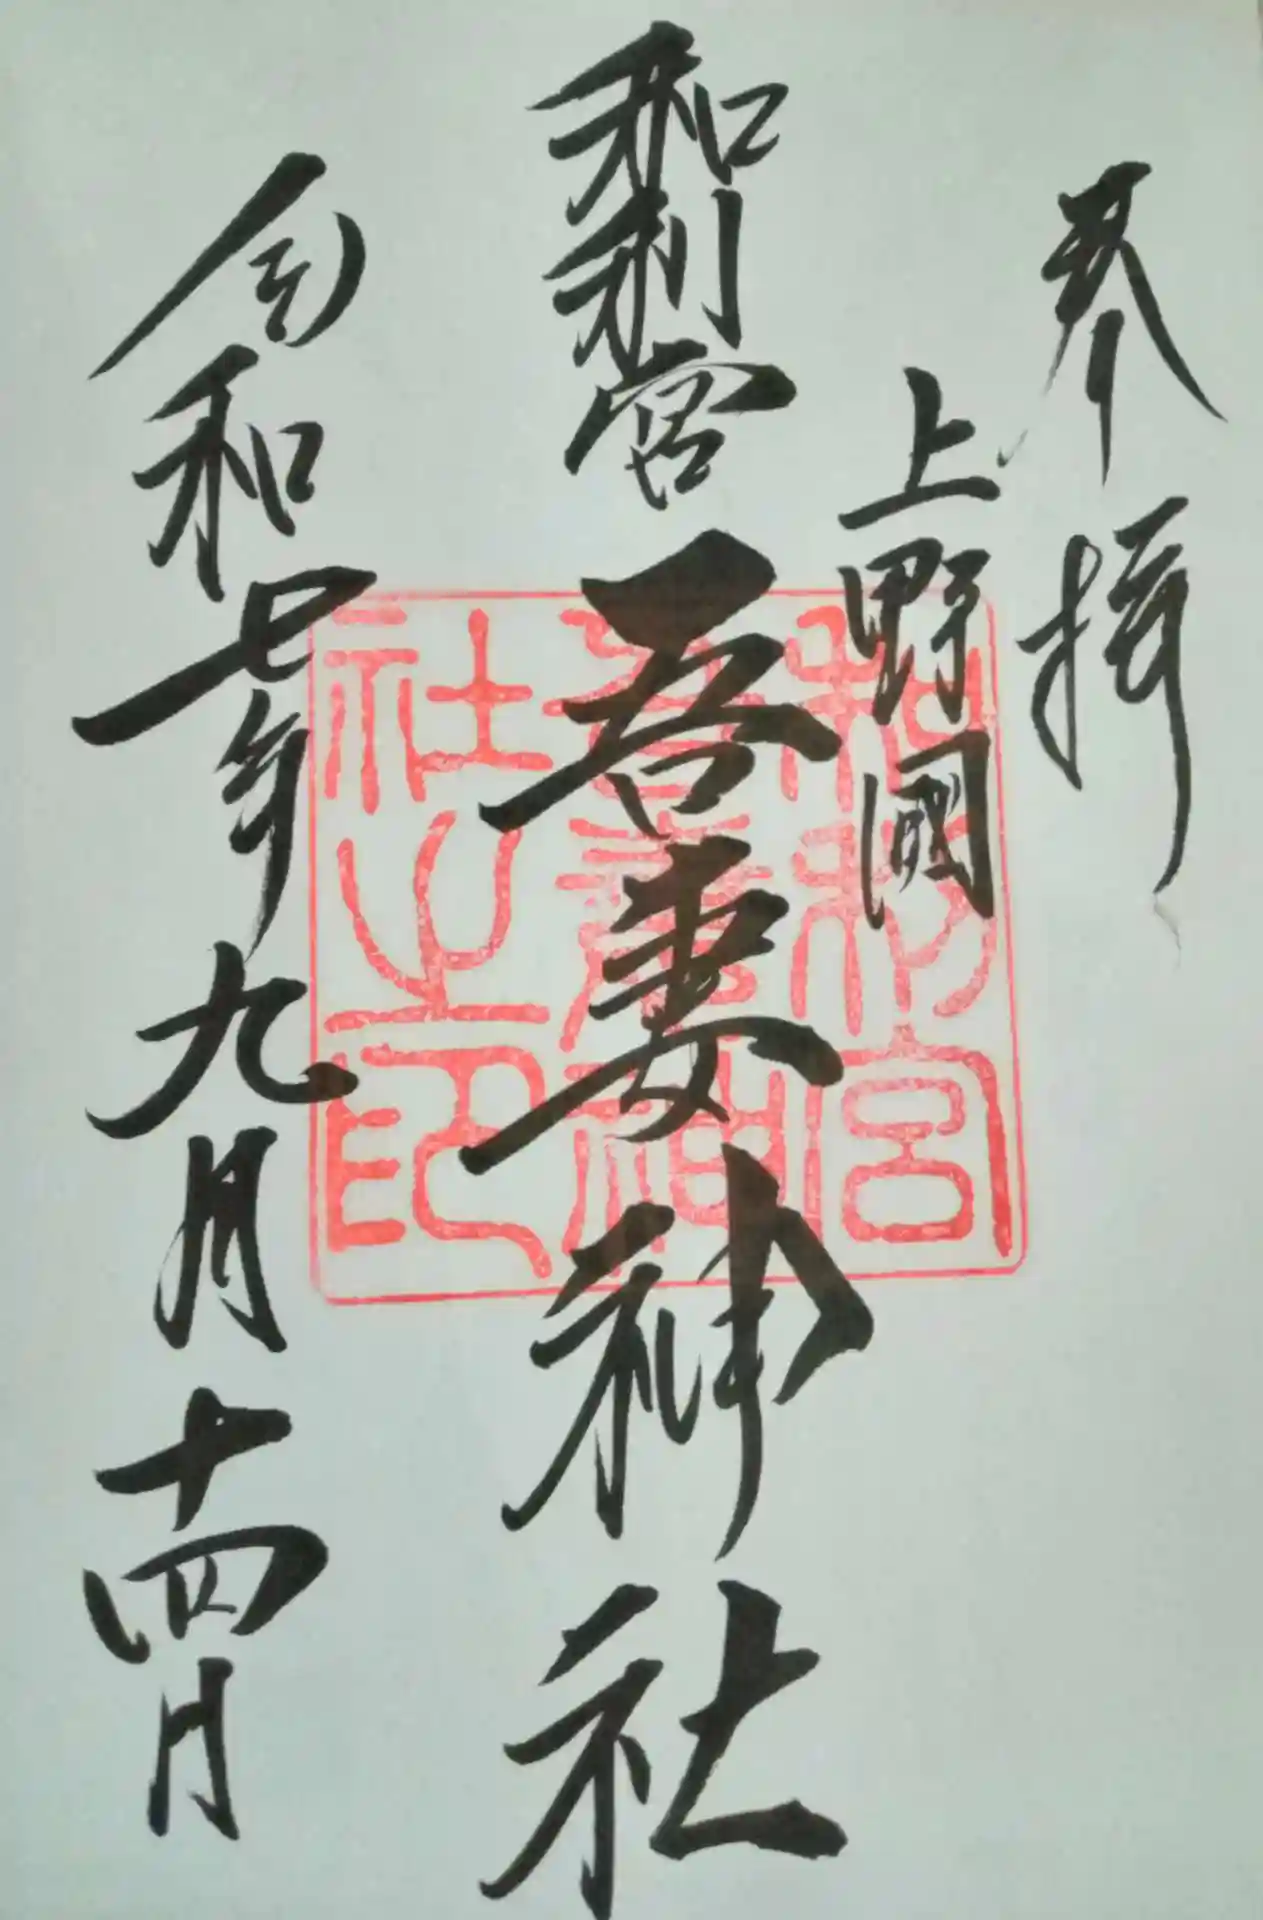 奉拝
上野國
和利宮
吾妻神社
令和七年九月十四日
和利宮
吾妻神
社之印